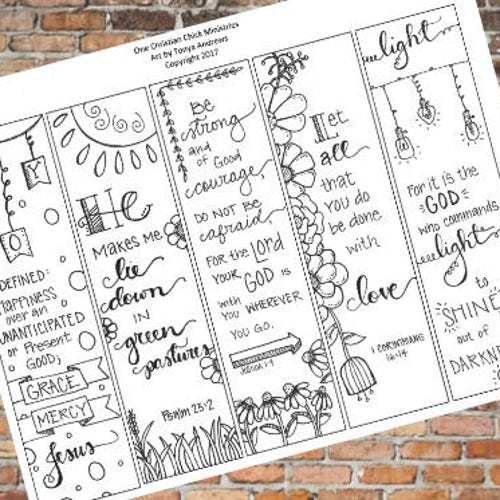 One Christian Chick Ministries
Art by Tonya Andrews
Copyright 2017
Y
O
DEFINED:
HAPPINESS
over an
UNANTICIPATED
or Present
GOOD;
GRACE
MERCY
Jesus
He
MAKES ME
lie
down
IN
green
pastures
Psalm 23:2
BE
strong
and
of Good
courage
DO NOT BE
afraid,
FOR the LORD
YOUR GOD IS
with
YOU WHEREVER
YOU GO.
JOSHUA 1:9
Let
all
that
YOU DO
be done
with
love
1 CORINTHIANS
16:14
light
For it is the
GOD
who commands
light
to
SHINE
out of